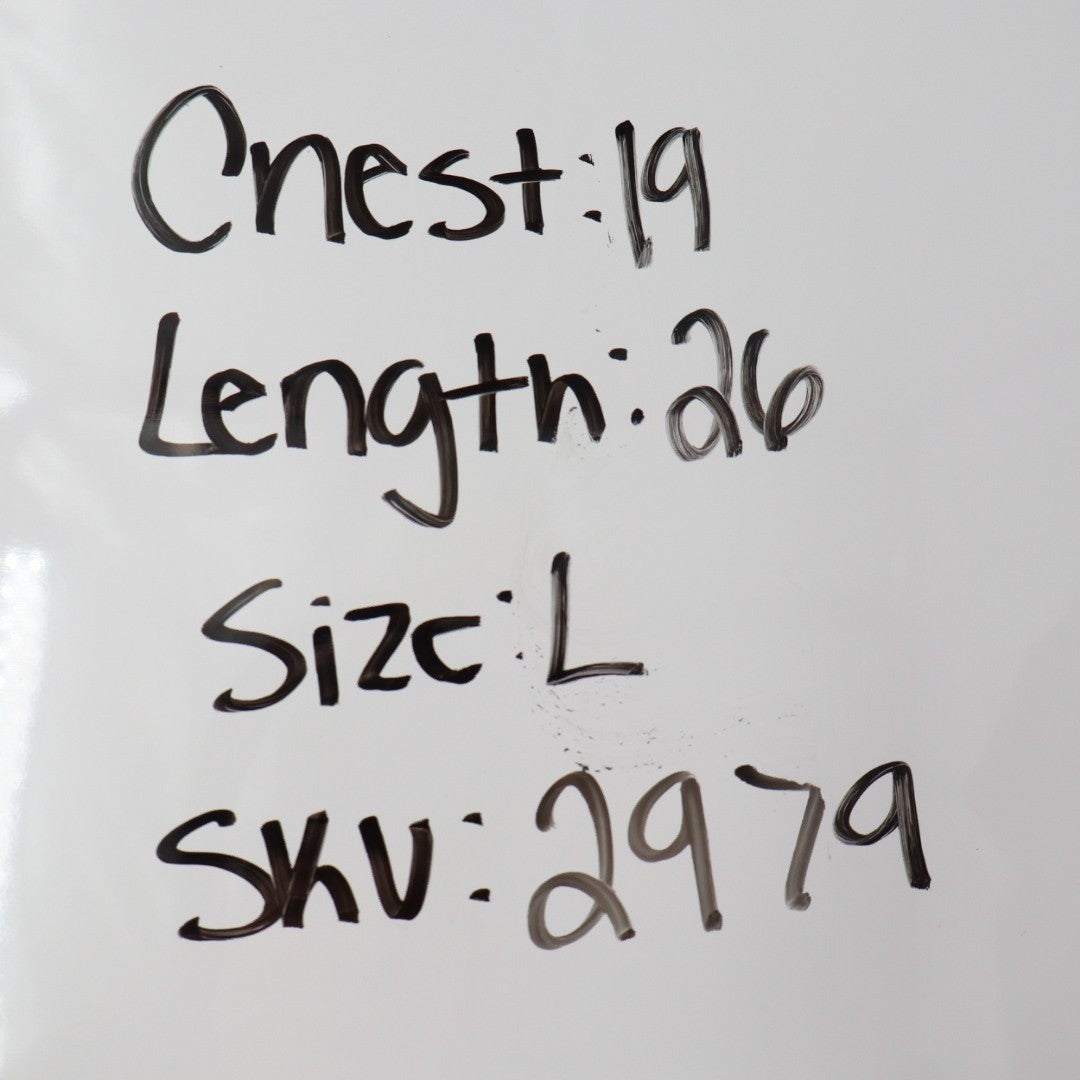 Chest: 19
Length: 26
Size: L
SKU: 2979